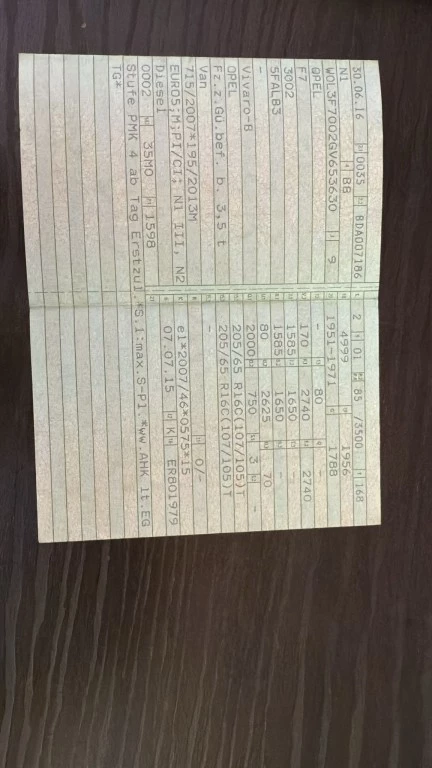 30.06.16 0035 8DA007186
N1 BB
W0L3F7002GV653630 9
OPEL
F7
3002
5FALB3
-
Vivaro-B
OPEL
Fz.z.Gü.bef. b. 3,5 t
Van
715/2007*195/2013M
EURO5;M;PI/CI; N1 III, N2
Diesel
0002 35M0 1598
Stufe PMK 4 ab Tag Erstzul.*S.1:max.S-Pl.*ww.AHK lt.EG
TG*
2 01 85 /3500 168
4999 1956
1951-1971 1788
- 80 -
170 2740 2740
1585 1650 -
1585 1650 -
80 2625 70
2000 750 3 -
205/65 R16C(107/105)T
205/65 R16C(107/105)T
- 0/-
e1*2007/46*0575*15
07.07.15 K ERB01979